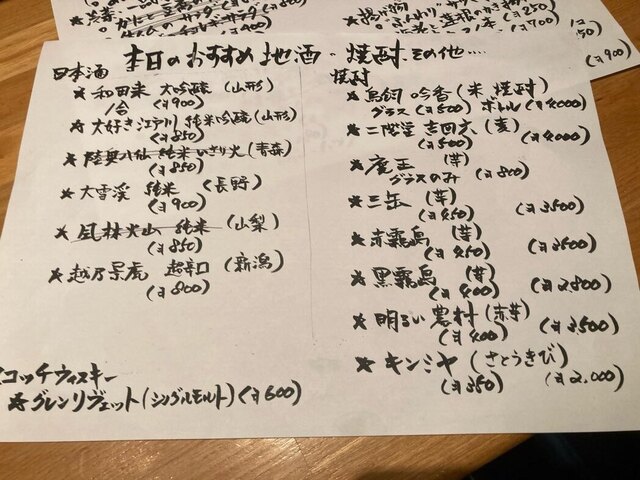 (¥250)
(¥700)
(¥900)
本日のおすすめ地酒・焼酎、その他....
日本酒
★ 和田来 大吟醸 (山形)
1合 (¥900)
★ 大好き江戸川 純米吟醸 (山形)
(¥850)
★ 陸奥八仙 純米 いさり火 (青森)
(¥850)
★ 大雪渓 純米 (長野)
(¥900)
★ 風林火山 純米 (山梨)
(¥850)
★ 越乃景虎 超辛口 (新潟)
(¥800)
スコッチウィスキー
★ グレンリヴェット (シングルモルト) (¥600)
焼酎
★ 鳥飼 吟香 (米焼酎)
グラス (¥500) ボトル (¥4000)
★ 二階堂 吉四六 (麦)
(¥500) (¥4000)
★ 魔王 (芋)
グラスのみ (¥800)
★ 三岳 (芋)
(¥450) (¥3500)
★ 赤霧島 (芋)
(¥450) (¥3500)
★ 黒霧島 (芋)
(¥400) (¥2,800)
★ 明るい農村 (赤芋)
(¥400) (¥3,500)
★ キンミヤ (さとうきび)
(¥350) (¥2,000)